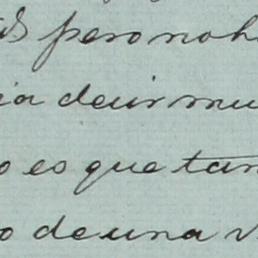 pero no h
ia decir mu
o es que tan
o de una v